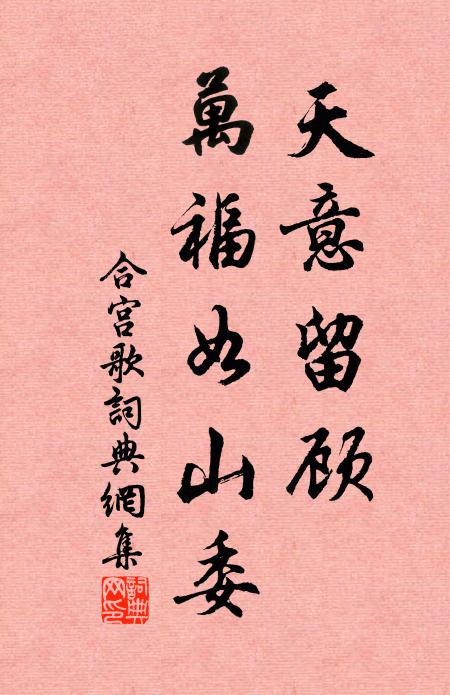 天意留顾
萬福如山委
合宮歌詞典網集
詞典網印